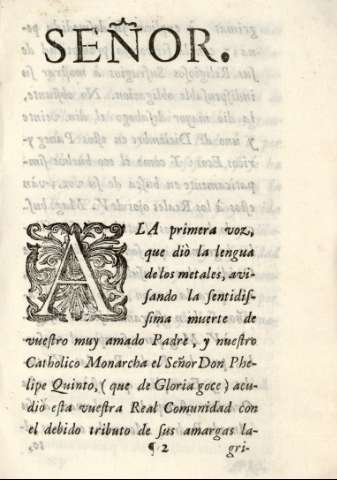 SEÑOR.
A LA primera voz,
que diò la lengua
de los metales, avi-
sando la sentidis-
sima muerte de
vuestro muy amado Padre, y nuestro
Catholico Monarcha el Señor Don Phe-
lipe Quinto, ( que de Gloria goce ) acu-
diò esta vuestra Real Comunidad con
el debido tributo de sus amargas la-
¶ 2 gri-